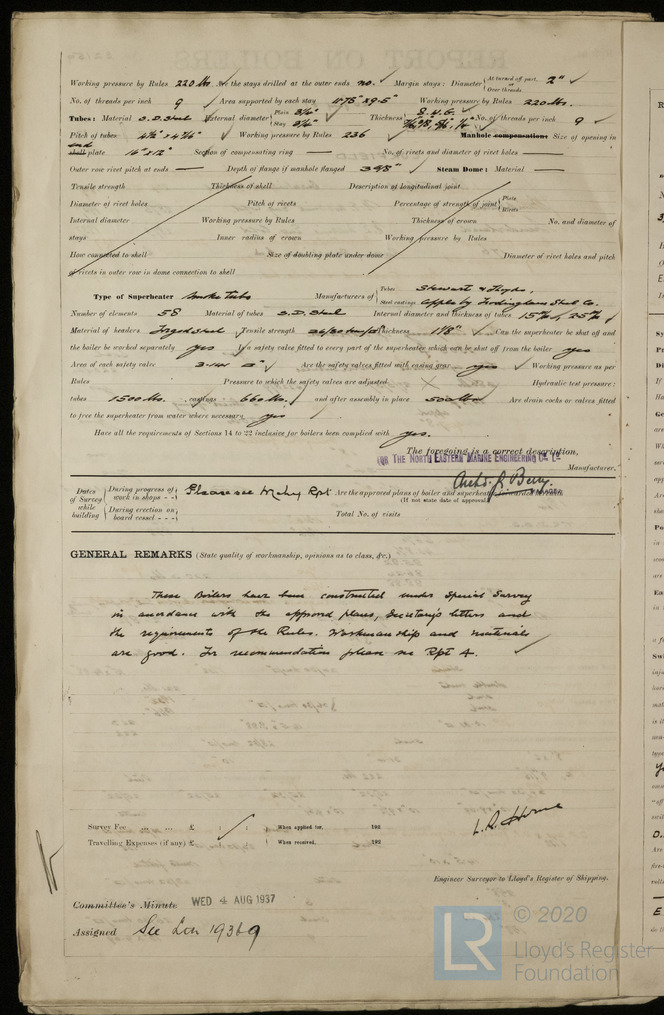 Working pressure by Rules 220 lbs Are the stays drilled at the outer ends no. Margin stays: Diameter { At turned off part, or Over threads 2"
No. of threads per inch 9 Area supported by each stay Working pressure by Rules 220 lbs.
Tubes: Material S.D. Steel External diameter { Plain Stay Thickness No. of threads per inch 9
Pitch of tubes Working pressure by Rules 236 Manhole compensation: Size of opening in
end
shell plate 16" x 12" Section of compensating ring — No. of rivets and diameter of rivet holes —
Outer row rivet pitch at ends — Depth of flange if manhole flanged Steam Dome: Material —
Tensile strength Thickness of shell Description of longitudinal joint
Diameter of rivet holes Pitch of rivets Percentage of strength of joint { Plate Rivets
Internal diameter Working pressure by Rules Thickness of crown No. and diameter of
stays Inner radius of crown Working pressure by Rules
How connected to shell Size of doubling plate under dome Diameter of rivet holes and pitch
of rivets in outer row in dome connection to shell
Type of Superheater Smoke tube Manufacturers of { Tubes Stewart & Lloyds.
Steel castings Appleby Frodingham Steel Co.
Number of elements 58 Material of tubes S.D. Steel Internal diameter and thickness of tubes
Material of headers Forged Steel Tensile strength Thickness 1 1/8" Can the superheater be shut off and
the boiler be worked separately yes Is a safety valve fitted to every part of the superheater which can be shut off from the boiler yes
Area of each safety valve Are the safety valves fitted with easing gear yes Working pressure as per
Rules Pressure to which the safety valves are adjusted Hydraulic test pressure:
tubes 1500 lbs. castings 660 lbs. and after assembly in place 500 lbs Are drain cocks or valves fitted
to free the superheater from water where necessary yes
Have all the requirements of Sections 14 to 22 inclusive for boilers been complied with yes.
The foregoing is a correct description,
FOR THE NORTH EASTERN MARINE ENGINEERING Co. Ld
Manufacturer.
Dates of Survey while building { During progress of work in shops - - Please see Mchy Rpt Are the approved plans of boiler and superheater
(If not state date of approval.)
During erection on board vessel - - - Total No. of visits
GENERAL REMARKS (State quality of workmanship, opinions as to class, &c.)
These Boilers have been constructed under Special Survey
in accordance with the approved plans, Secretary's letters and
the requirements of the Rules. Workmanship and materials
are good. For recommendation please see Rpt 4.
Survey Fee ... ... ... £ : : When applied for, 193
Travelling Expenses (if any) £ : : When received, 192
Engineer Surveyor to Lloyd's Register of Shipping.
Committee's Minute WED 4 AUG 1937
Assigned See Lon 19369
LR © 2020
Lloyd's Register
Foundation